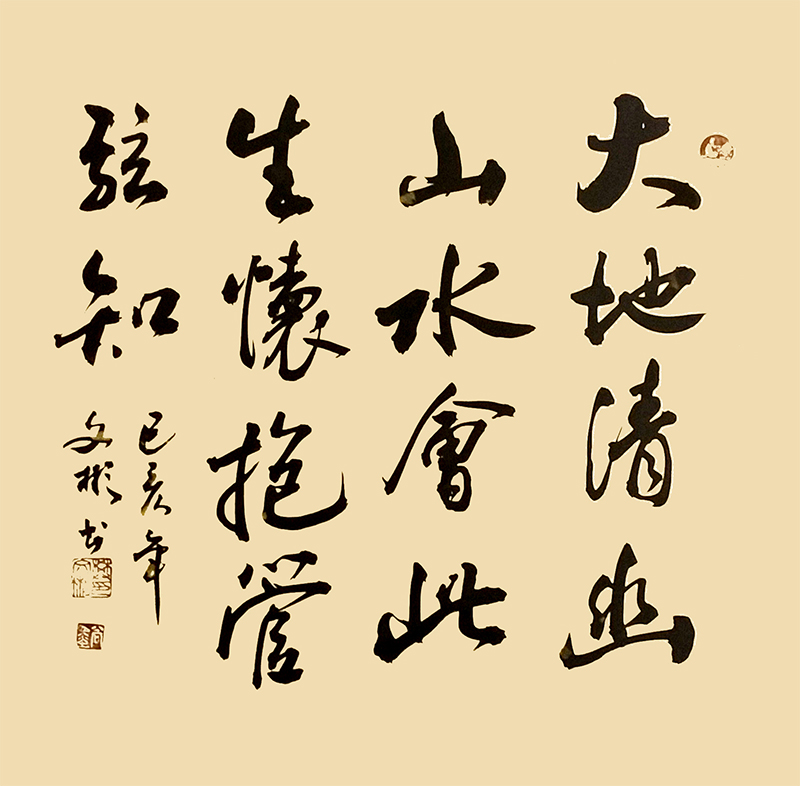 大地清幽
山水會此
生懷抱管
絃知
己亥年
文彬书